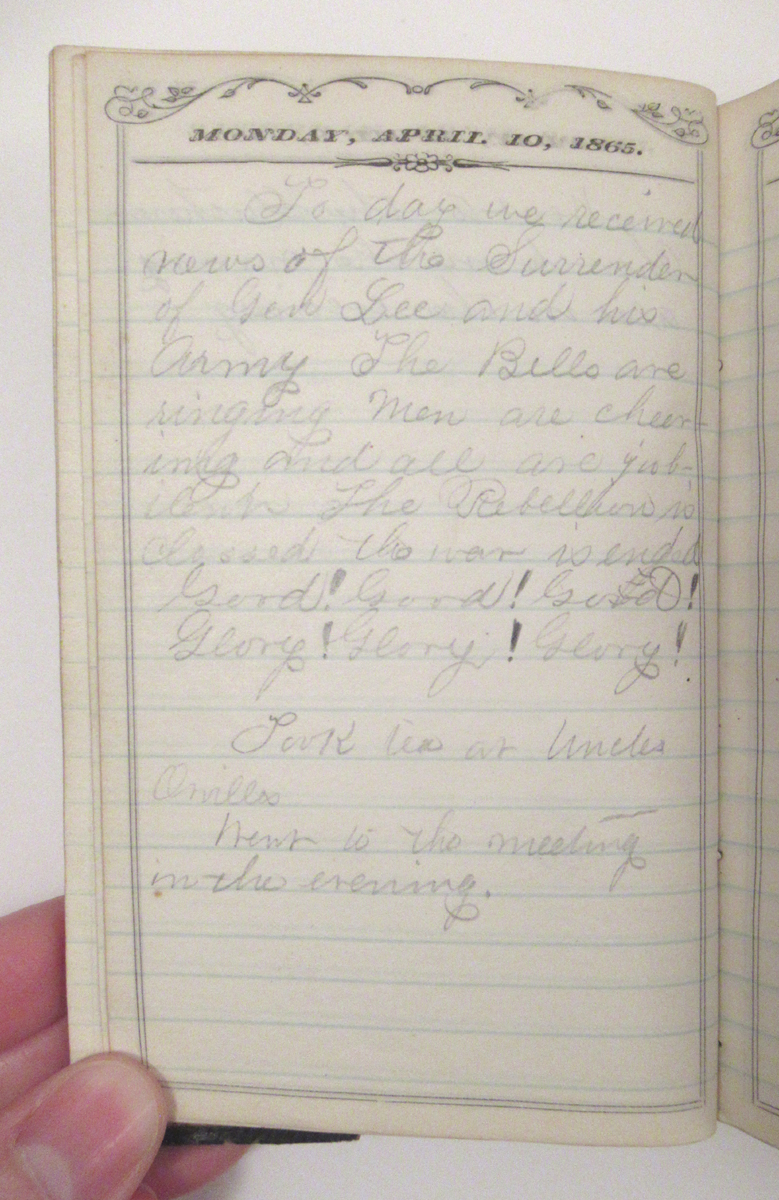 MONDAY, APRIL 10, 1865.
To day we received
news of the Surrender
of Gen Lee and his
Army The Bells are
ringing Men are cheer-
ing and all are jub-
ilent The Rebellion is
Clossed the war is ended
Good! Good! Good!
Glory! Glory! Glory!
Took tea at Uncles
Orvills
Went to the meeting
in the evening.